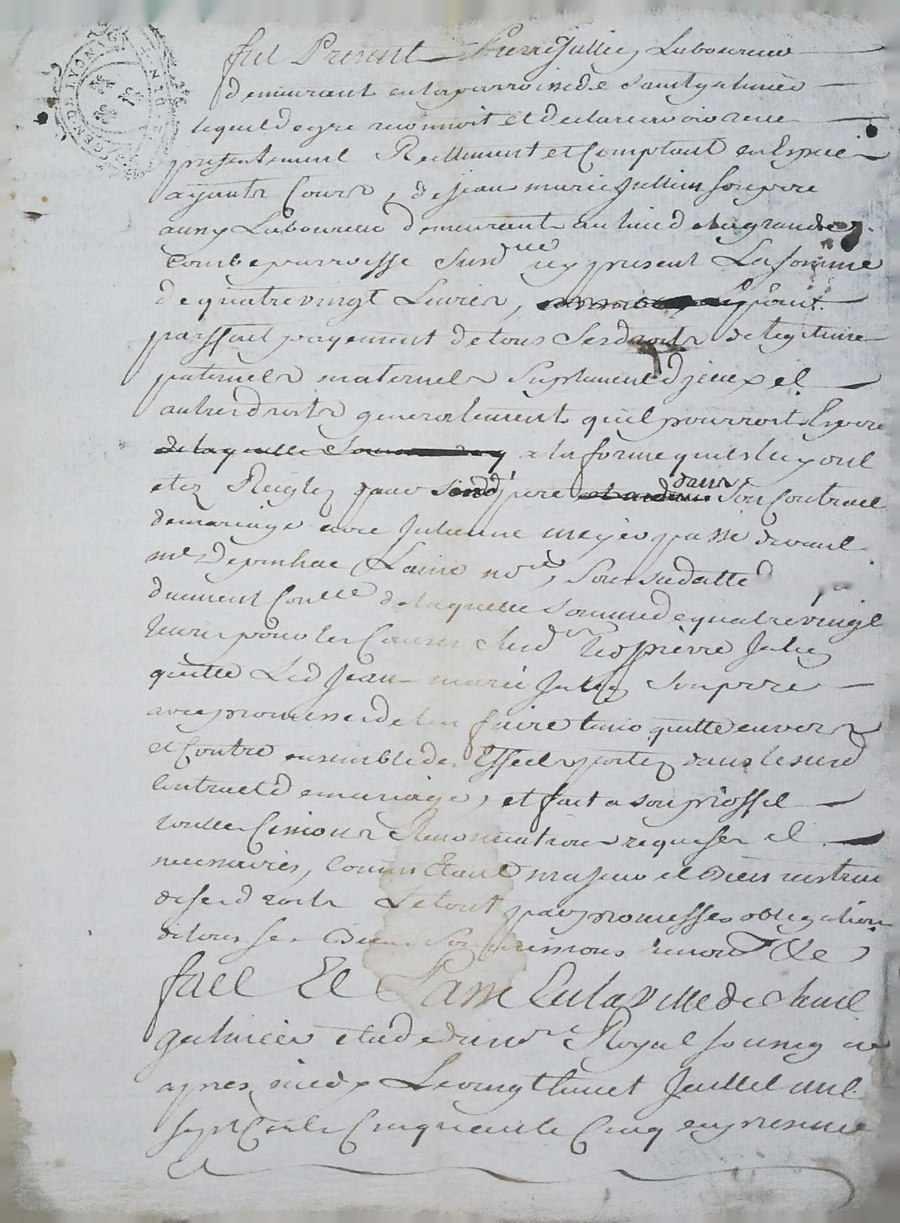 GEN DE LYON
fut Present Pierre Jullien Laboureur
demeurant en la parroisse de saint galmier
lequel de gre reconnoit et declare avoir receu
presentement Reellement et Comptant en Espece
ayants Cours, de jean marie Jullien son pere
aussy Laboureur demeurant au lieu de la grande
Combe parroisse susd icy present La somme
de quatre vingt Livres, pour
parfait payement de tous ses droits de legitime
paternels maternels suplement d'jceux et
autres droits generalement quil pourroit
de laquelle somme a la forme quils luy ont
etez Reiglez par sond pere dans son Contract
de mariage avec Julienne passé devant
me Depinhac Laine nore, sous sa datte
duement Conllé de laquelle somme de quatre vingt
livres pour les Causes led pierre Julien
quitte Led Jean marie Julien son pere
avec promesse de len faire tenir quitte envers
et Contre ensemble des Effects portez dans le susd
Contract de mariage, et fait a son proffit
toutes Cessions Renonciations requises et
necessaires, Comme Etant majeur et bien instruit
de ses droits Le tout par promesses obligation
de tous ses Biens soumissions renonon &c
fait Et Passé En la Ville de saint
galmier etude du nore Royal soussigné
apres midy Le vingt huit Juillet mil
sept Cent Cinquante Cinq en presence